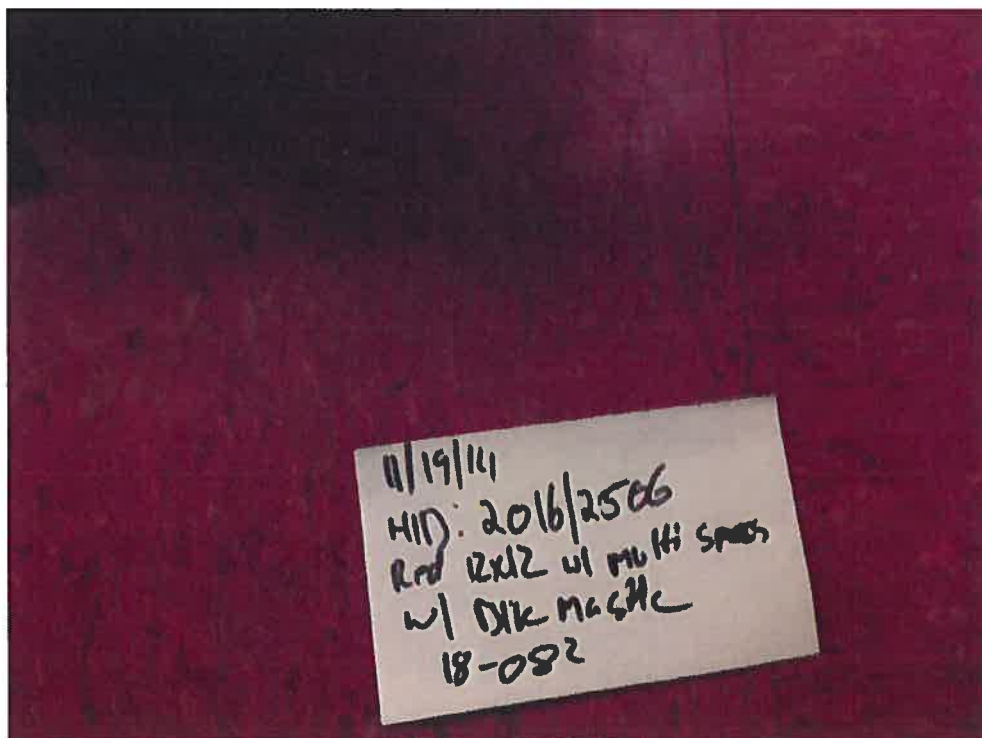 11/19/14
MID: 2016/2506
Red 12x12 w/ Multi
w/ Blk Mastic
18-082